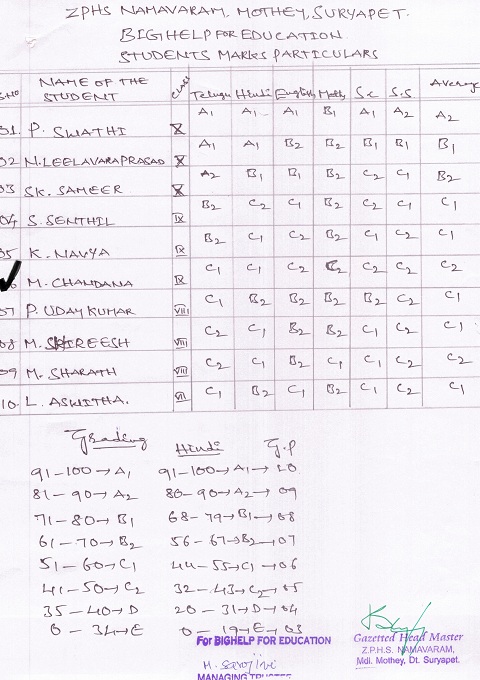 ZPHS NAMAVARAM, MOTHEY, SURYAPET.
BIGHELP FOR EDUCATION
STUDENTS MARKS PARTICULARS
S.No NAME OF THE STUDENT Class Telugu Hindi English Maths S.c S.S Average
01. P. SWATHI X A1 A1 A1 B1 A1 A2 A2
02 N.LEELAVARA PRASAD X A1 A1 B2 B2 B1 B1 B1
03 SK. SAMEER X A2 B1 B1 B2 C2 C1 B2
04 S. SENTHIL IX B2 C2 C1 B2 C2 C1 C1
05 K. NAVYA IX B2 C1 C1 C2 C1 C2 C1
06 M. CHANDANA IX C1 C1 C2 C2 C2 C2 C2
07 P. UDAY KUMAR VIII C1 B2 B2 B2 B2 C2 C1
08 M. SHIREESH VIII C2 C1 B2 B2 C1 C2 C1
09 M. SHARATH VIII C2 C1 B2 C1 C1 C2 C2
10. L. ASWITHA. VII C1 B2 C1 B2 C1 C2 C1
Grading Hindi G.P
91-100→A1 91-100→A1→10
81-90→A2 80-90→A2→09
71-80→B1 68-79→B1→08
61-70→B2 56-67→B2→07
51-60→C1 44-55→C1→06
41-50→C2 32-43→C2→05
35-40→D 20-31→D→04
0-34→E 0-19→E→03
For BIGHELP FOR EDUCATION
M. Sarojini
MANAGING TRUSTEE
Gazetted Head Master
Z.P.H.S. NAMAVARAM,
Mdl. Mothey, Dt. Suryapet.